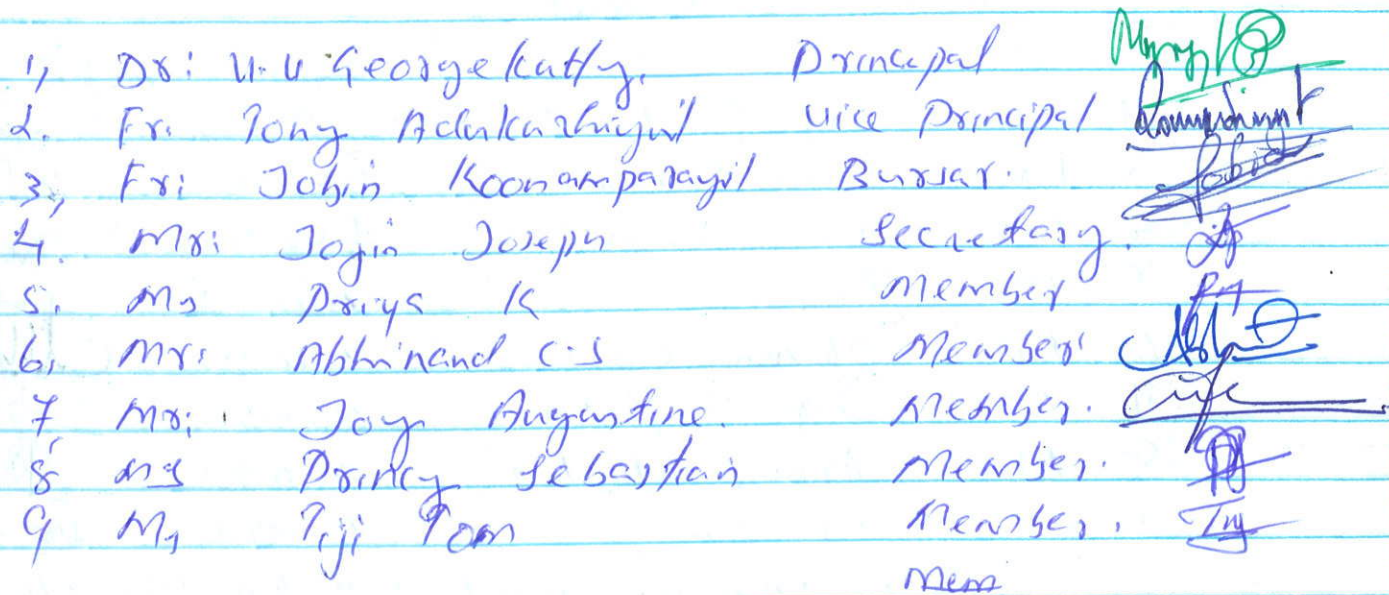 1, Dr: V.U Georgekutty. Principal
2. Fr. Tony Adukazhiyil Vice Principal
3, Fr: Jobin Koonamparayil Bursar.
4. Mr: Jojin Joseph Secretary.
5. Ms Priya K Member
6, Mr: Abhinand C.S Member
7, Mr: Joy Augustine. Member.
8 Ms Princy Sebastian Member.
9 Ms Tiji Tom Member.
Mem